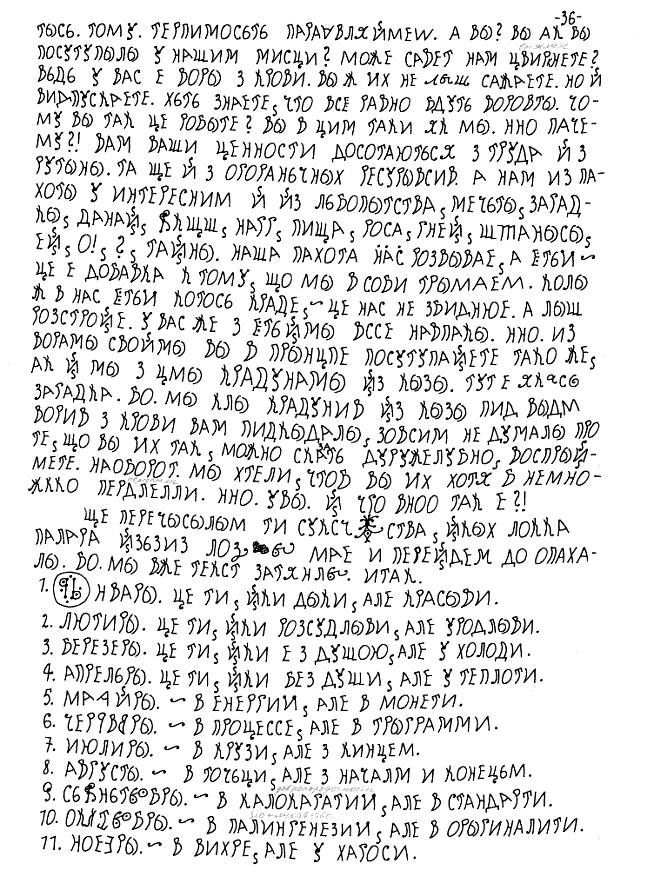 -36-
ТЫСЬ. ТОМУ. ТЕРПИМОСЬТЬ А ВЫ? ВЫ АК ВЫ
ПОСУТУПОЛЫ У НАШИМ МИСЦИ? МОЖЕ САДЕТ НАМ ЦВИРНЕТЕ?
ВЬДЬ У ВАС Е ВОРЫ З КРОВИ. ВЫ Ж ИХ НЕ ЛЫШ САЖАЕТЕ. НО Й
ВИДПУСКАЕТЕ. ХОТЬ ЗНАЕТЕ, ЧТО ВСЕ РАВНО ВДУТЬ ВОРОВТЫ. ЧО-
МУ ВЫ ТАК ЦЕ РОВЫТЕ? ВЫ В ЦИМ ТАКИ ЯК МЫ. ННО ПАЧЕ-
МУ?! ВАМ ВАШИ ЦЕННОСТИ ДОСОТАЮТЬСЯ З ТРУДА Й З
РУТЫНЫ. ТА ЩЕ Й З РЕСУРЫСИВ. А НАМ ИЗ ПА-
ХОТЫ У ИНТЕРЕСНИМ Й ЙЗ ЛЬВОПЫТСТВА, МЕЧЬТЫ, ЗАГАД-
КЫ, ДАНАЙ, НАГГ, ПИЩА, РОСА, ГНЕЙ, ШТАНЫСЫ,
ЕЙ, О!, ?, ТАЙНЫ. НАША ПАХОТА НАС РОЗВЫВАЕ, А ЕТЬИ ~
ЦЕ Е ДОВАВКА К ТОМУ, ЩО МЫ В СОВИ ТРЫМАЕМ. КОЛЫ
Ж В НАС ЕТЬИ КОТОСЬ КРАДЕ, ~ ЦЕ НАС НЕ ЗВИДНЮЕ. А ЛЫШ
РОЗСТРОЙЕ. У ВАС ЖЕ З ЕТЬЙМЫ ВССЕ НАВПАКЫ. ННО. ИЗ
ВОРАМЫ СВОЙМЫ ВЫ В ПРЫНЦПЕ ПОСУТУПАЙЕТЕ ТАКО ЖЕ,
АК Й МЫ З ЦМЫ КРАДУНАМЫ ЙЗ КЫЗЫ. ТУТ Е ЯКАСЬ
ЗАГАДКА. ВО. МЫ КЛЫ КРАДУНИВ ЙЗ КЫЗЫ ПИД ВЫДМ
ВОРИВ З КРОВИ ВАМ ПИДКЫДАЛЫ, ЗОВСИМ НЕ ДУМАЛЫ ПРО
ТЕ, ЩО ВЫ ИХ ТАК, МОЖНО СКАТЬ ДУРУЖЕЛУВНО, ВОСПРЫЙ-
МЕТЕ. НАОВОРОТ. МЫ ХТЕЛИ, ЧТОВ ВЫ ИХ ХОТЯ В НЕМНО-
ЖККО ПЕРДЛЕЛЛИ. ННО. УВЫ. Й ЧТО ВНОО ТАК Е?!
ЩЕ ПЕРЕЧЫСОЛЫМ ТИ СТВА, ЙКЫХ ЛОККА
ПАЛАРА МАЕ И ПЕРЕЙДЕМ ДО ОПАХА-
ЛЫ. ВО. МЫ ВЖЕ ТЕКСТ ЗАТЯНЛЫ. ИТАК.
1. НВАРЫ. ЦЕ ТИ, ЙКИ ДЫКИ, АЛЕ КРАСЫВИ.
2. ЛЮТИРЫ. ЦЕ ТИ, ЙКИ РОЗСУДЛЫВИ, АЛЕ УРОДЛЫВИ.
3. БЕРЕЗЕРЫ. ЦЕ ТИ, ЙКИ Е З ДУШОЮ, АЛЕ У ХОЛОДИ.
4. АПРЕЛЬРЫ. ЦЕ ТИ, ЙКИ БЕЗ ДУШИ, АЛЕ У ТЕПЛОТИ.
5. МААЙРЫ. ~ В ЕНЕРГИИ, АЛЕ В МОНЕТИ.
6. ЧЕРРВВРЫ. ~ В ПРОЦЕССЕ, АЛЕ В ТРЫГРАММИ.
7. ИЮЛИРЫ. ~ В КРУЗИ, АЛЕ З КИНЦЕМ.
8. АВГУСТЫ. ~ В ТОЧЬЦИ, АЛЕ З НАЧАЛМ И КОНЕЦЬМ.
9. ~ В КАЛОКАГАТИИ, АЛЕ В СТАНДАРТИ.
10. ~ В ПАЛИНГЕНЕЗИИ, АЛЕ В ОРЫГИНАЛИТИ.
11. НОЕЗРЫ. ~ В ВИХРЕ, АЛЕ У ХАГОСИ.